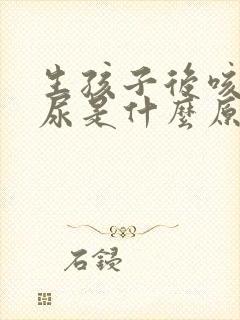 生孩子後咳
尿是什麼原
石鋟